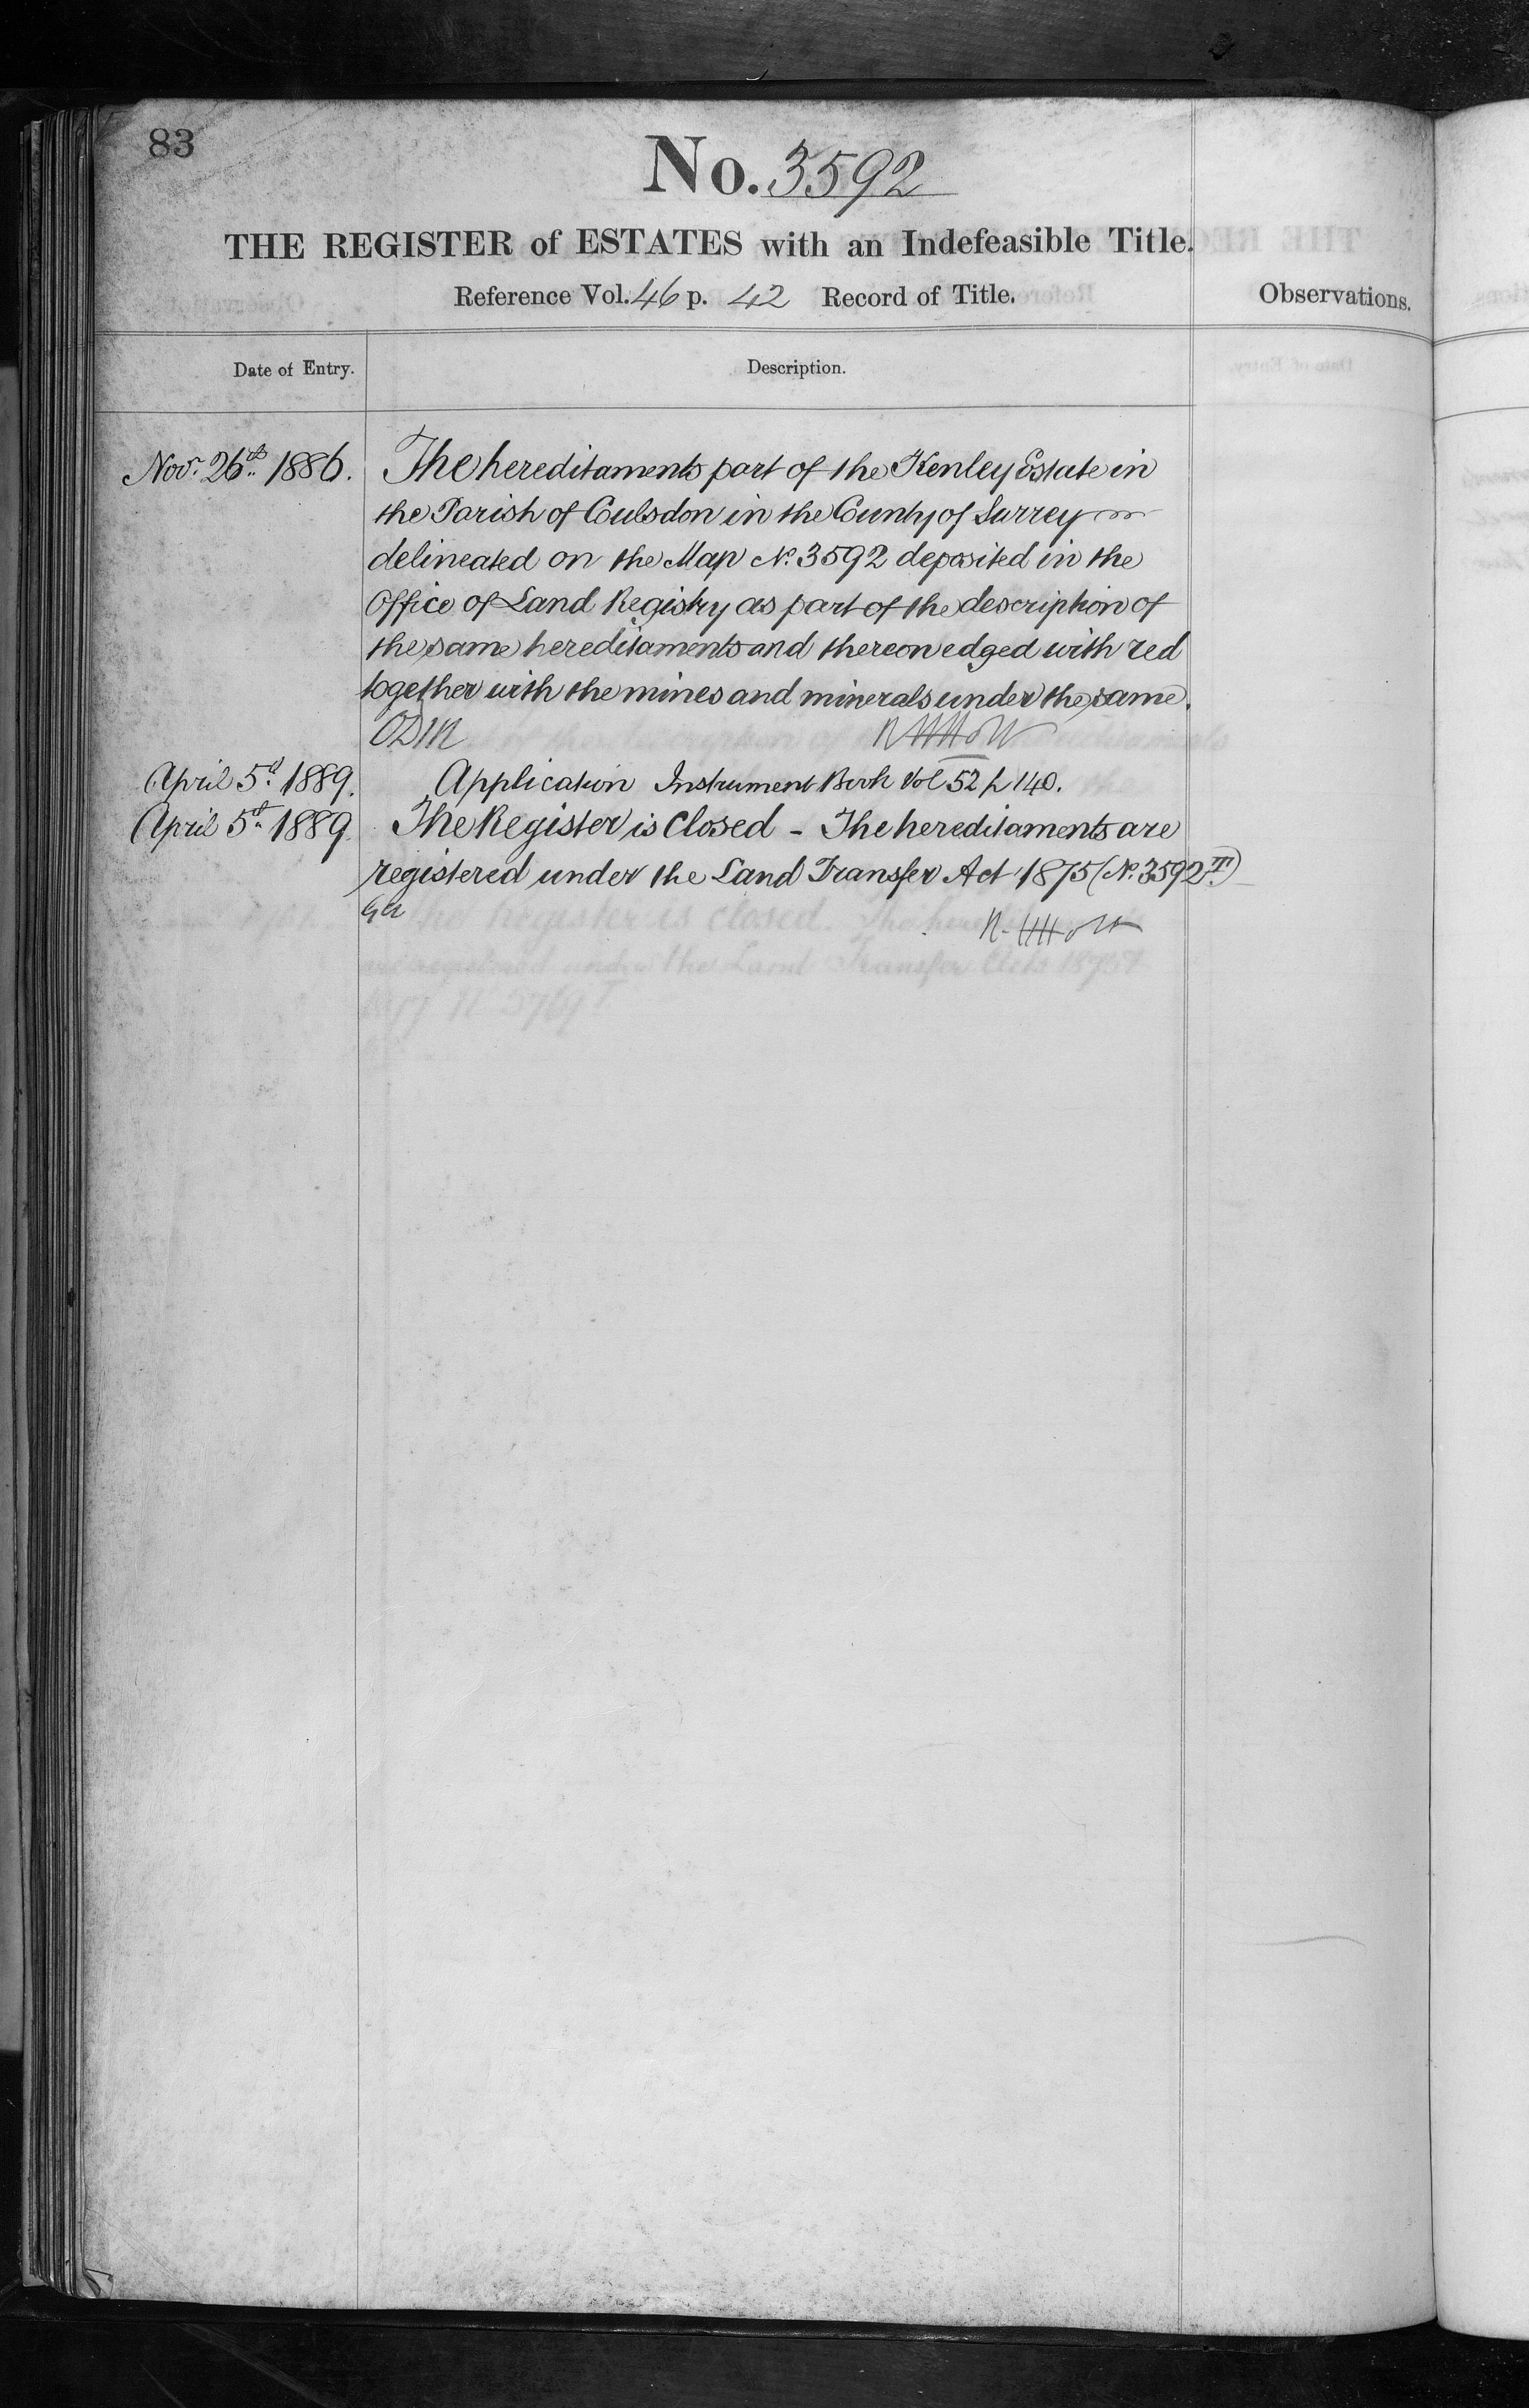 83
No. 3592
THE REGISTER of ESTATES with an Indefeasible Title.
Reference Vol. 46 p. 42 Record of Title.
Observations.
Date of Entry.
Description.
Novr. 26th 1886. The hereditaments part of the Kenley Estate in
the Parish of Coulsdon in the County of Surrey
delineated on the Map No. 3592 deposited in the
Office of Land Registry as part of the description of
the same hereditaments and thereon edged with red
together with the mines and minerals under the same.
April 5th 1889. Application Instrument Book Vol 52 p 140.
April 5th 1889 The Register is Closed - The hereditaments are
registered under the Land Transfer Act 1875 (No. 3592